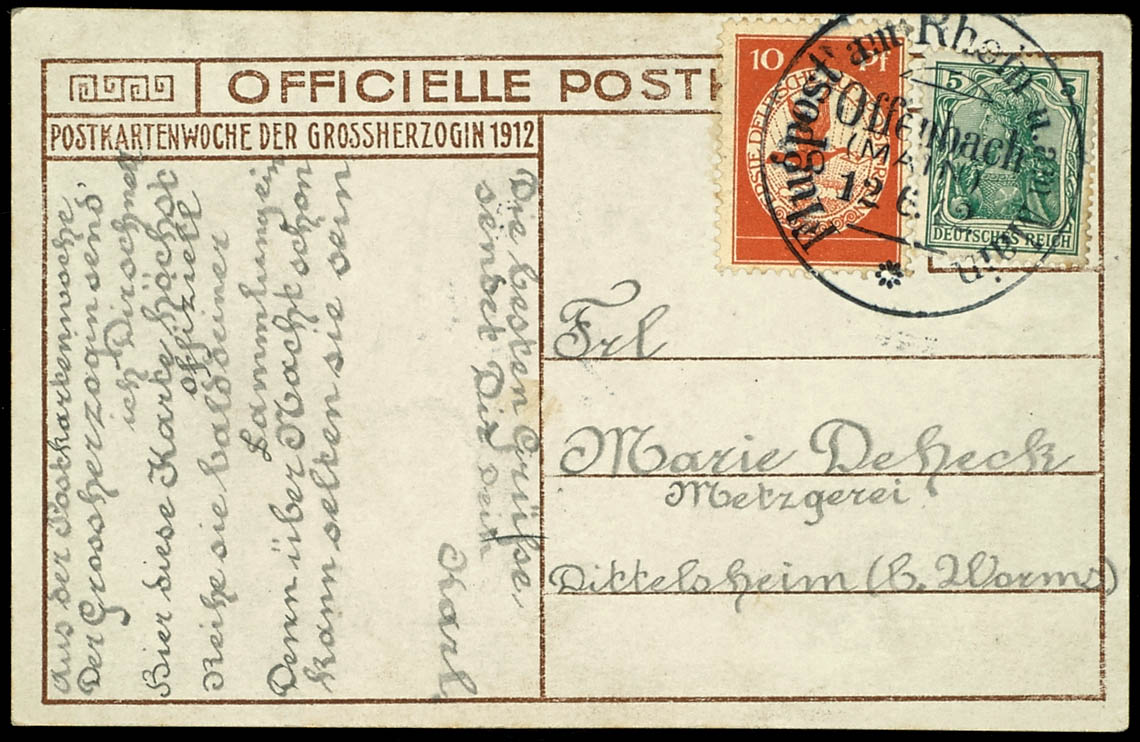 OFFICIELLE POSTK
POSTKARTENWOCHE DER GROSSHERZOGIN 1912
Aus der Postkartenwoche
Der Grossherzogin send'
ich Dirschnell
Hier diese Karte höchst
offiziell
Reihe sie bald Deiner
Sammlung ein
Denn über Nacht schon
kann selten sie sein
Die besten Grüße,
sendet Dir Dein
Karl
10 Pf
ERSTE DEUTSCHE
5 5
DEUTSCHES REICH
Flugpost am Rhein u. am Main
Offenbach
(MAIN)
12 6
Frl
Marie Deheck
Metzgerei
Dittelsheim (b. Worms)